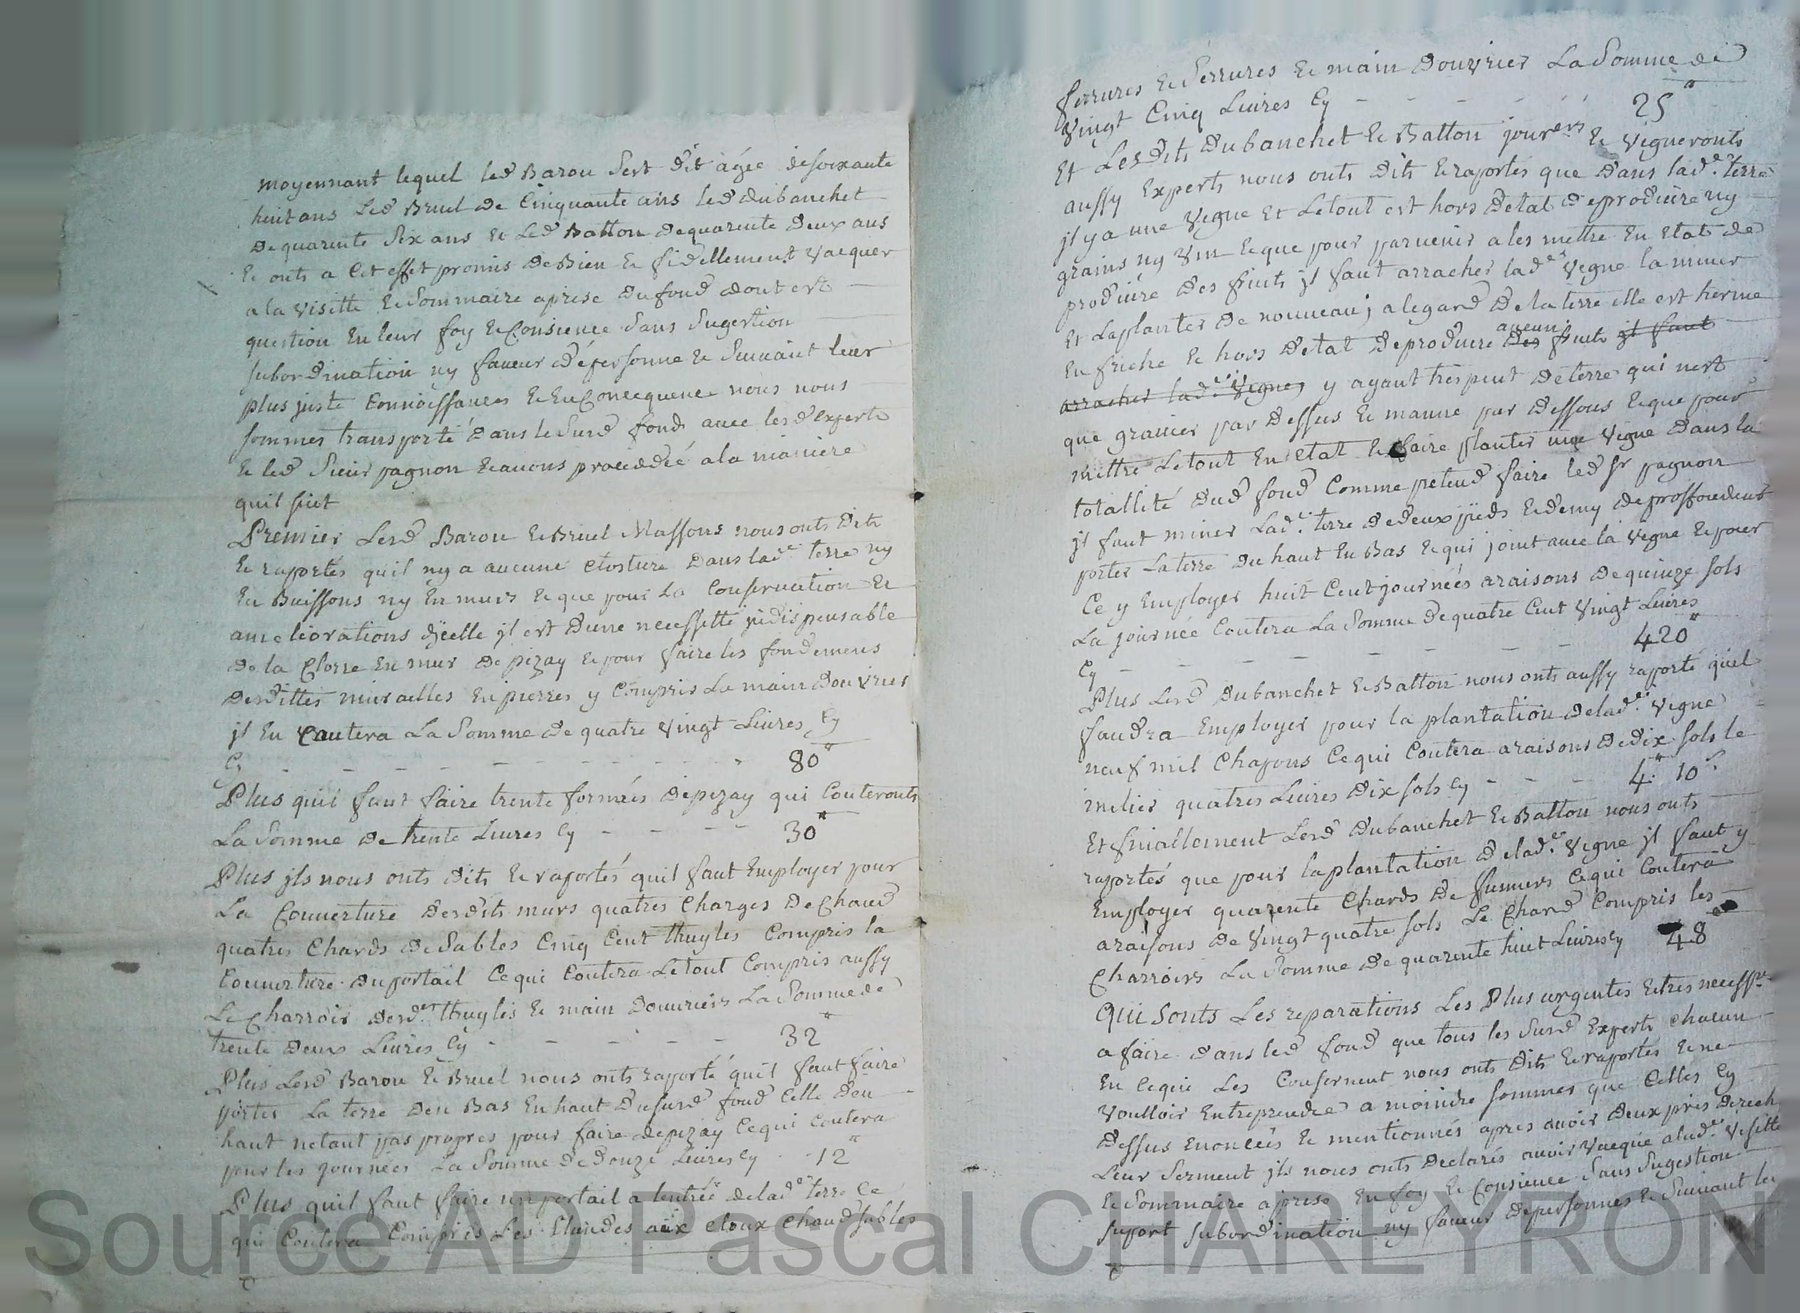 moyennant lequel led Barou sest dit agée de soixante
huit ans Led Bruel de Cinquante ans led dubanchet
de quarente six ans et Led Batton de quarente deux ans
Et onts a Cet effet promis de Bien Et fidellement vacquer
a la visitte Et sommaire aprise du fond dont est
question En leur foy Et Consience sans sugestion
subordination ny faveur de personne Et suivant leur
plus juste Connoissances Et En Consequence nous nous
sommes transporté dans le surd fonds avec lesd experts
Et led sieur pagnon Et avons proceddéé a la maniere
quil suit
Premier Lesd Barou Et Bruel Massons nous onts dits
Et raportés quil ny a aucune Closture dans lad.e terre ny
En Buissons ny En murs Et que pour La Conservation Et
ameliorations dycelle jl est dune necessitté jndispensable
de la Clorre En mur de pizay Et pour faire les fondements
desdittes murailles En pierres y Compris La main douvrier
jl En Coutera La Somme de quatre vingt Livres Cy
Cy - - - - - - - - 80"
Plus quil faut faire trente formées de pizay qui Couteronts
La Somme de trente Livres Cy - - - - 30"
Plus jls nous onts dits Et raportés quil faut Employer pour
La Couverture desdits murs quatres Charges de Chaud
quatres Chards de Sables Cinq Cent thuyles Compris la
Couverture du portail Ce qui Coutera Le tout Compris aussy
Le Charroir desd.es thuyles Et main douvriers La Somme de
trente deux Livres Cy - - - - - 32"
Plus Lesd Barou Et Bruel nous onts raporté quil faut faire
porter La terre den Bas En haut dusurd fond Celle den
haut netant pas propres pour faire de pizay Ce qui Coutera
pour les journées La Somme de douze Livres Cy - 12"
Plus quil faut faire un portail a lentréé delad.e terre Ce
qui Coutera Compris Les aux Cloux Chaud sables
ferrures Et Serrures Et main douvrier La Somme de
vingt Cinq Livres Cy - - - - - 25"
Et Lesdits Dubanchet Et Batton Et vigneronts
aussy Experts nous onts dits Et raportés que dans lad.e terre
jl y a une vigne Et Le tout est hors detat de produire ny
grains ny vin Et que pour parvenir a les mettre En Etat de
produire des fruits jl faut arracher lad.e vigne la miner
Et La planter de nouveau j a legard de la terre elle est herme
En friche Et hors detat de produire des aucun fruits jl faut
arracher lad.e vigne, y ayant tres peut de terre qui nest
que gravier par dessus Et manne par dessous Et que pour
mettre Le tout En Etat Et faire planter une vigne dans la
totallité dud fond Comme pretend faire led sr pagnon
jl faut miner Lad.e terre de deux pieds Et demy de proffondeur
porter La terre du haut En Bas Et qui joint avec la vigne Et pour
Ce y Employer huit Cent journéés araisons de quinze sols
La journéé Coutera La Somme de quatre Cent vingt Livres
Cy - - - - - - - 420"
Plus Lesd Dubanchet Et Batton nous onts aussy raporté quil
faudra Employer pour la plantation delad.e vigne
neuf mil Chapons Ce qui Coutera araisons de dix sols le
milier quatres Livres Dix sols Cy - - - 4" 10s
Et finallement Lesd Dubanchet Et Batton nous onts
raportés que pour la plantation delad.e vigne jl faut y
Employer quarente Chards de fumiers Ce qui Coutera
araisons de vingt quatre sols Le Chard Compris les
Charroirs La Somme de quarente huit Livres Cy 48
Qui Sonts Les reparations Les Plus urgentes Et tres necess.res
a faire dans led fond que tous les surd Experts Chacun
En Ce qui Les Consernent nous onts dits Et raportés Et ne
voulloir Entreprendre a moindre sommes que Celles Cy
dessus Enoncéés Et mentionnés apres avoir deux pris derech
Leur serment jls nous onts declarés avoir vacquée alad.e visitte
Et Sommaire aprise En foy Et Consience Sans Sugestion
suport subordination ny faveur de personnes Et Suivant le
Source AD Pascal CHAREYRON